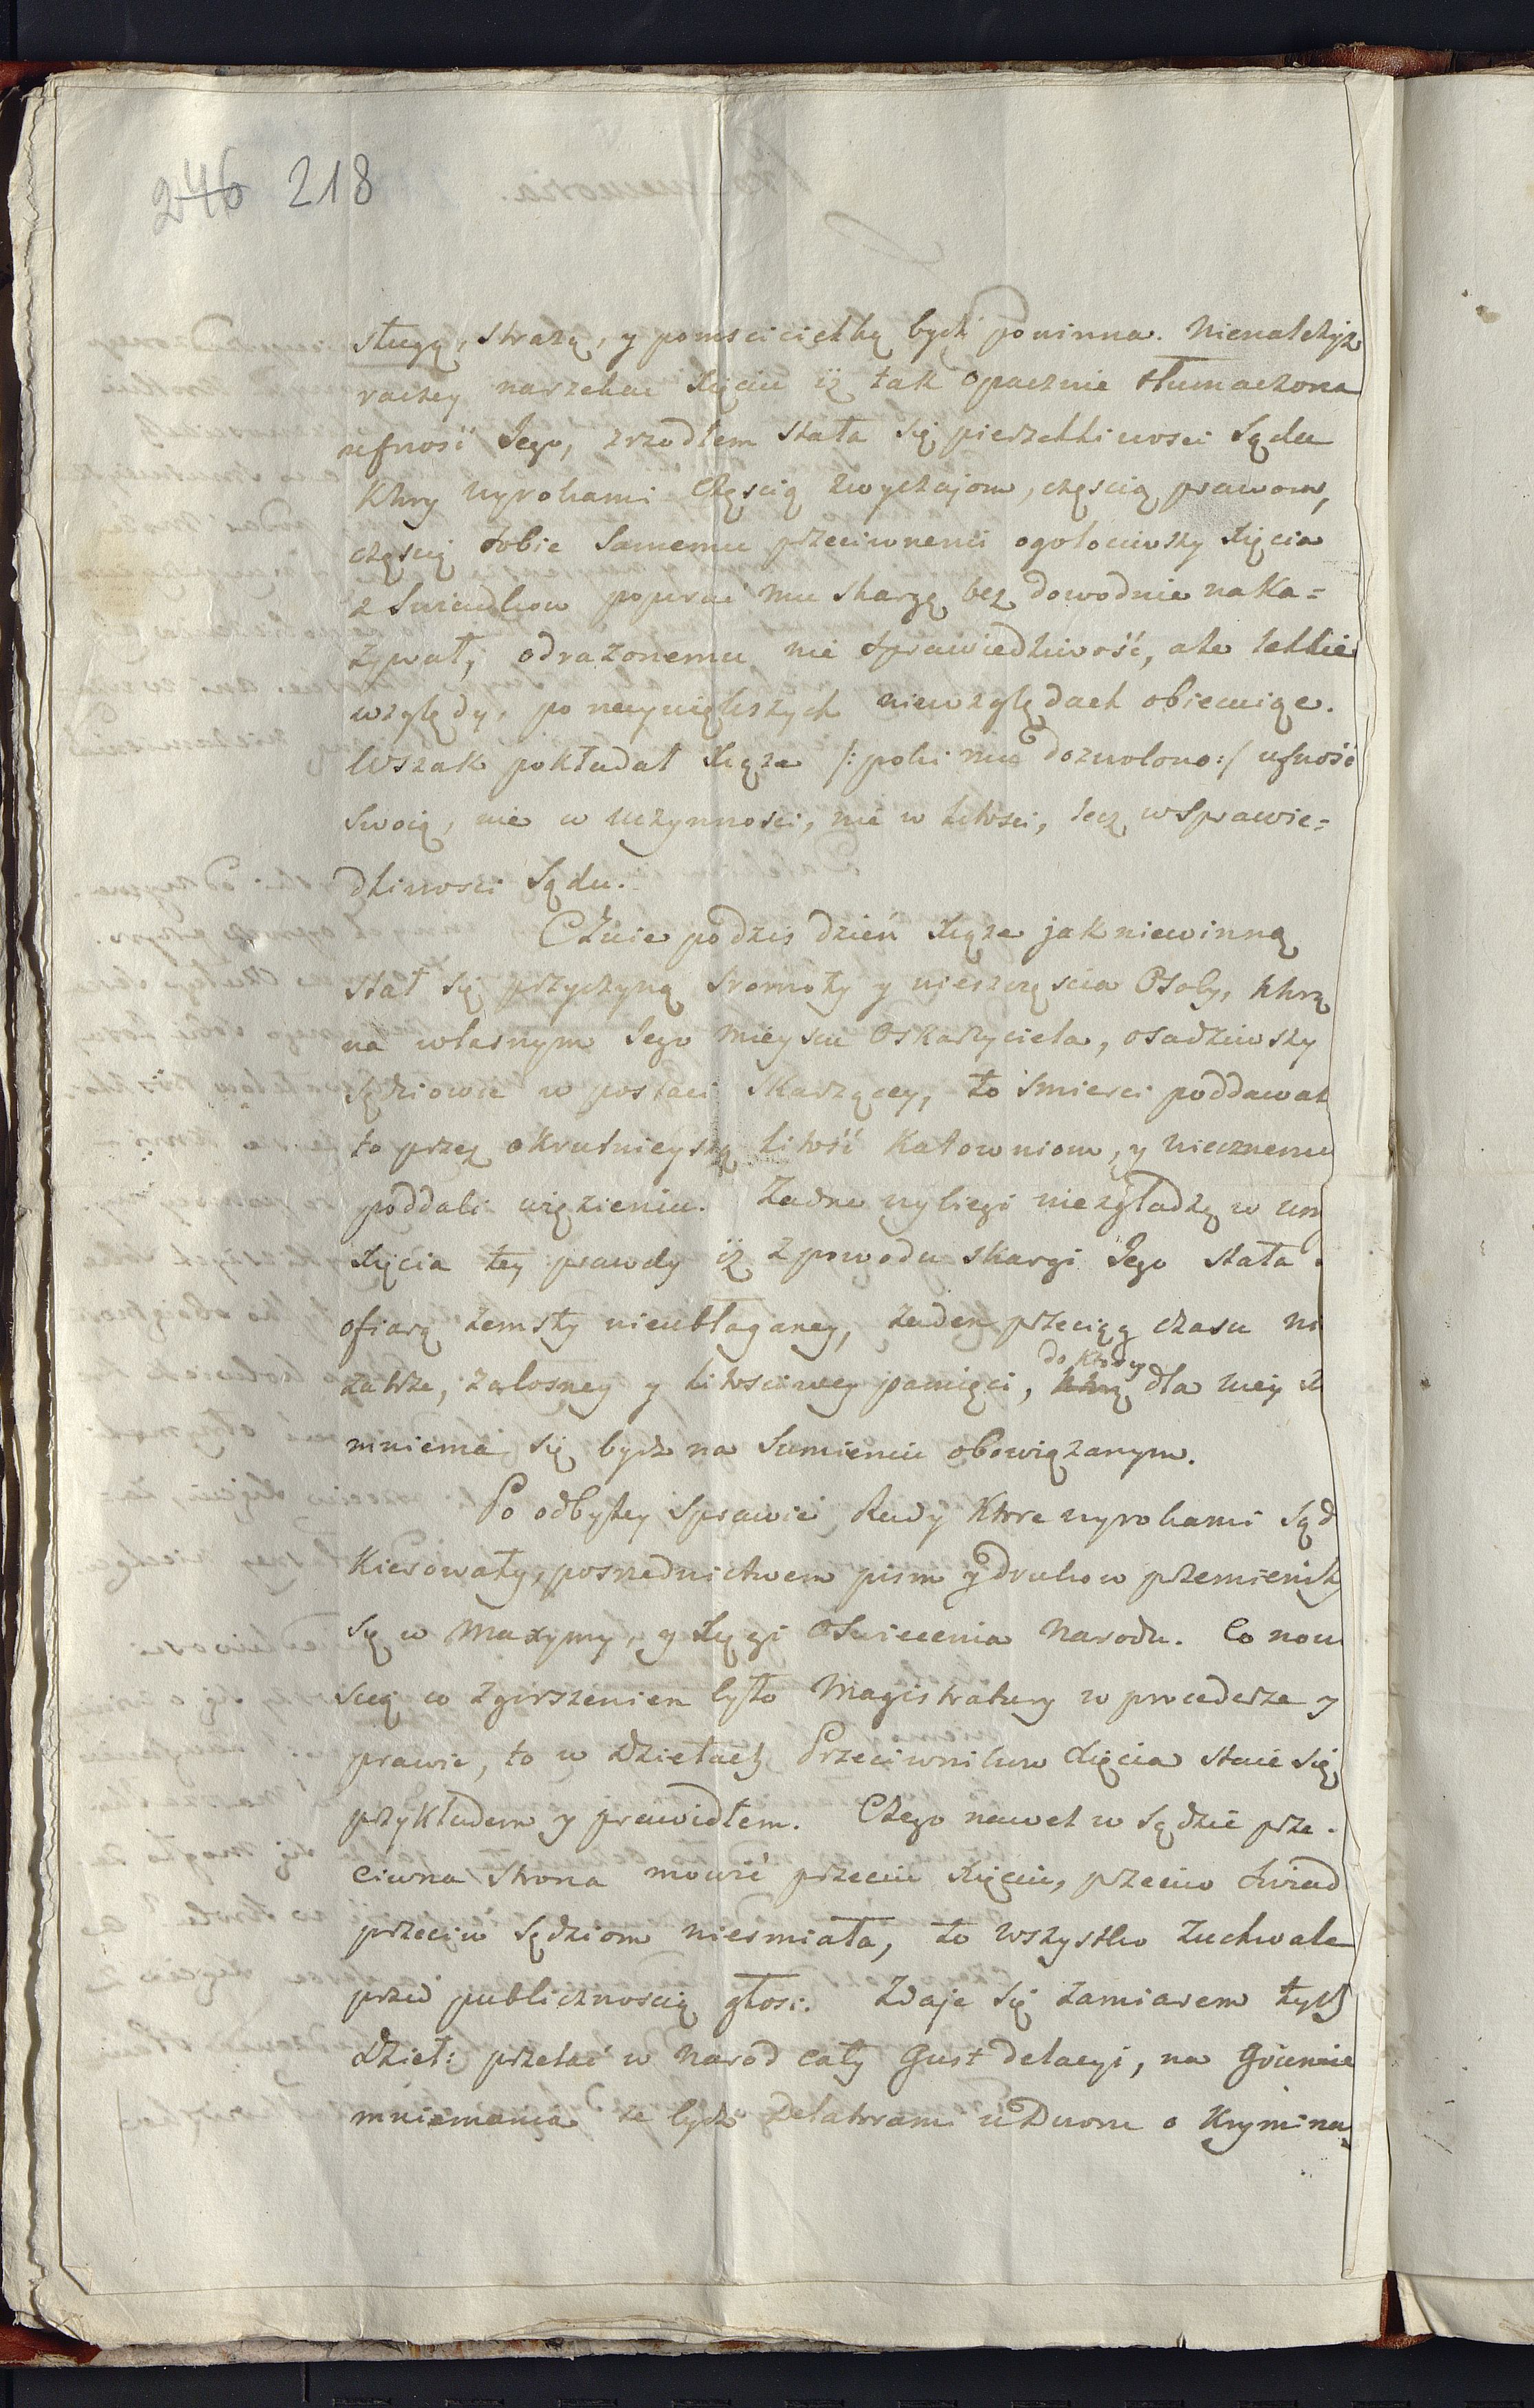 246 218
sługą, strażą, y pomscicielką bydź powinna. Nienależyż
raczey narzekac Xięciu iż tak opacznie tłumaczona
ufność Jego, zrzodłem stała się pierzchliwosci Sądu
Ktory wyrokami częscią zwyczajom, częscią prawom,
częscią sobie samemu przeciwnemi ogołociwszy Xięcia
z Swiadkow popierać mu skargę bez dowodnie naka=
zywał, odrażonemu nie sprawiedliwość, ale lekkie
względy, po naywiększych niewzględach obiecuiąc.
Wszak pokładał Xiąże /: poki mu dozwolono :/ ufność
Swoią, nie w uczynności, nie w litości, lecz w Sprawie=
dliwosci Sądu.
Czuie podzis dzień Xiąże jak niewinną
stał się przyczyną sromoty y nieszczęscia Osoby, ktorą
na własnym Jego mieyscu Oskarzyciela, osadziwszy
Sędziowie w postaci skarzącey, to smierci poddawal
to przez okrutnieyszą litość katowniom, y wiecznemu
poddali więzieniu. Żadne wybiegi niezgładzą w um
Xięcia tey prawdy iż z powodu skargi Jego stała
ofiarą zemsty nieubłaganey, żaden przeciąg czasu ni
zatrze, żałosney y litosciwey pamięci, ktorą do ktorey dla niey
mniema się bydz na Sumieniu obowiązanym.
Po odbytey Sprawie Rady Ktore wyrokami Sąd
Kierowały, posrzednictwem pism y drukow przemienily
Się w Maxymy, y Xięgi Oswiecenia Narodu. Co now
scią w zgorszeniem było Magistratury w procederze y
prawie, to w Dziełach Przeciwnikow Xięcia staie się
przykładem y prawidłem. Czego nawet w Sądzie prze-
ciwna Strona mowić przeciw Xięciu, przeciw Swiad
przeciw Sędziom niesmiała, to wszystko zuchwale
przed publicznoscią głosi. Zdaje się zamiarem tych
Dzieł: przelać w Narod cały Gust delacyi, na Gruncie
mniemania ze bydź Delatorami u Dworu o Krymina